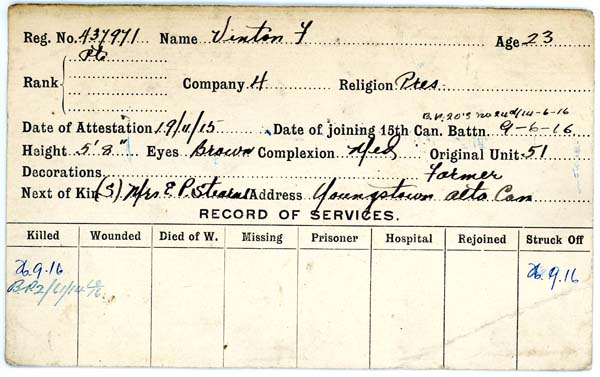 Reg. No. 437971 Name Vinton F Age 23
Rank Pte Company H Religion Pres.
B.P. 20's no 24 d/14-6-16
Date of Attestation 19/11/15 Date of joining 15th Can. Battn. 9-6-16
Height 5' 8" Eyes Brown Complexion Med Original Unit 51
Decorations Former
Next of Kin (S) Mrs E. P. Stearns Address Youngstown Alta Can
RECORD OF SERVICES.
Killed Wounded Died of W. Missing Prisoner Hospital Rejoined Struck Off
26.9.16 26.9.16